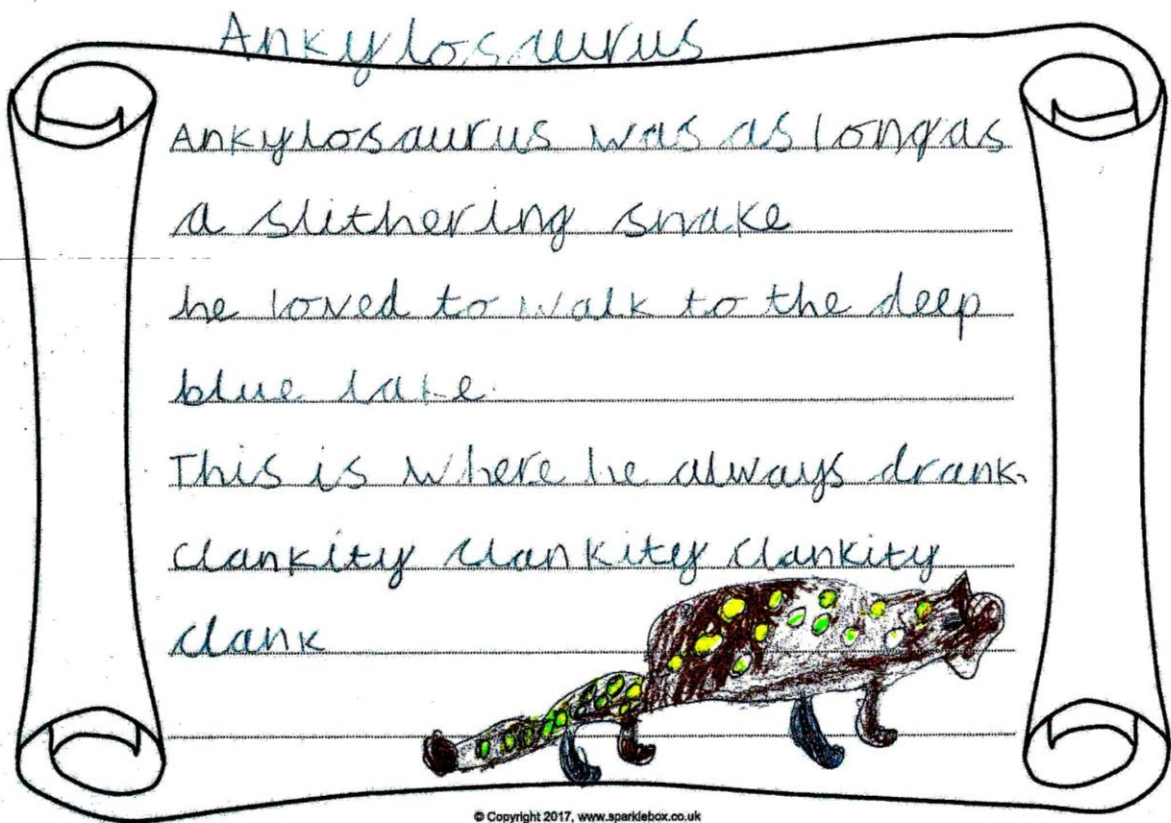 Ankylosaurus
Ankylosaurus was as long as
a slithering snake
he loved to walk to the deep
blue lake.
This is where he always drank.
clankity clankity clankity
clank
© Copyright 2017, www.sparklebox.co.uk